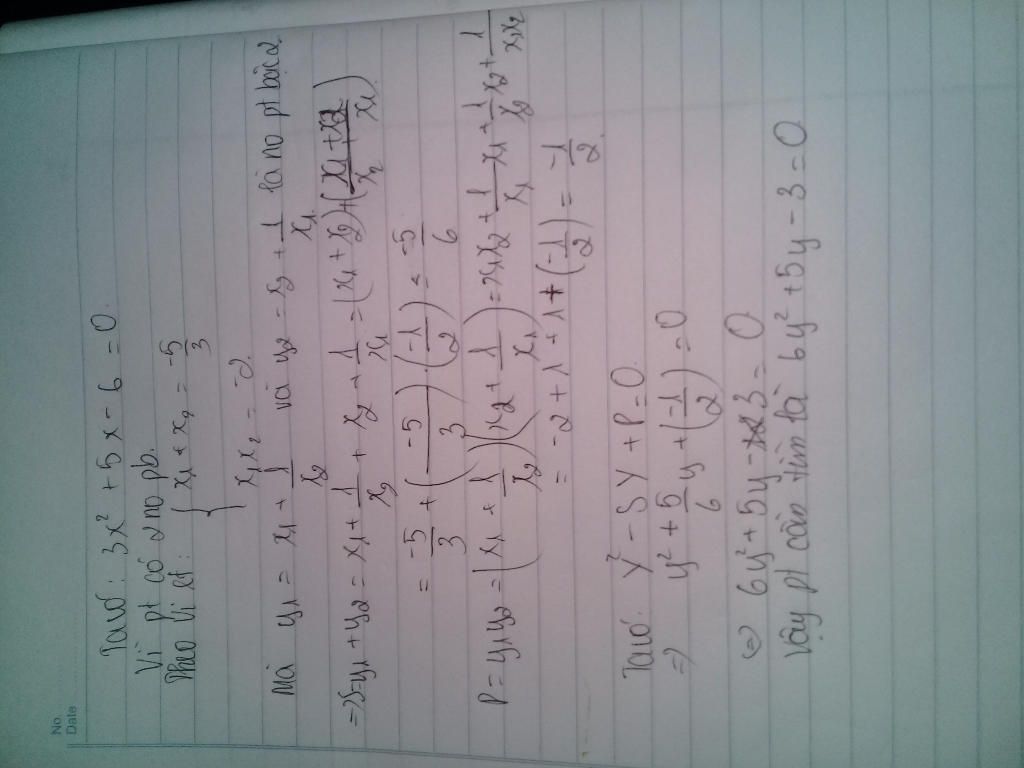 No.
Date
Ta có: 3x² + 5x - 6 = 0.
Vì pt có 2 no pb.
Theo Vi et: { x₁ + x₂ = -5/3
x₁x₂ = -2.
Mà y₁ = x₁ + 1/x₂ và y₂ = x₂ + 1/x₁ là no pt bậc 2
=> S = y₁ + y₂ = x₁ + 1/x₂ + x₂ + 1/x₁ = (x₁ + x₂) + (x₁ + x₂
= -5/3 + (-5/3) . (-1/2) = -5/6
P = y₁y₂ = (x₁ + 1/x₂)(x₂ + 1/x₁) = x₁x₂ + 1/x₁ x₁ + 1/x₂ x₂ + 1/x₁x₂
= -2 + 1 + 1 + (-1/2) = -1/2.
Ta có: Y² - SY + P = 0.
=> y² + 5/6 y + (-1/2) = 0
<=> 6y² + 5y - 3 = 0.
Vậy pt cần tìm là 6y² + 5y - 3 = 0